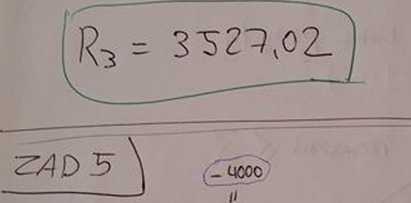 R3 = 3527,02
ZAD 5
- 4000
"